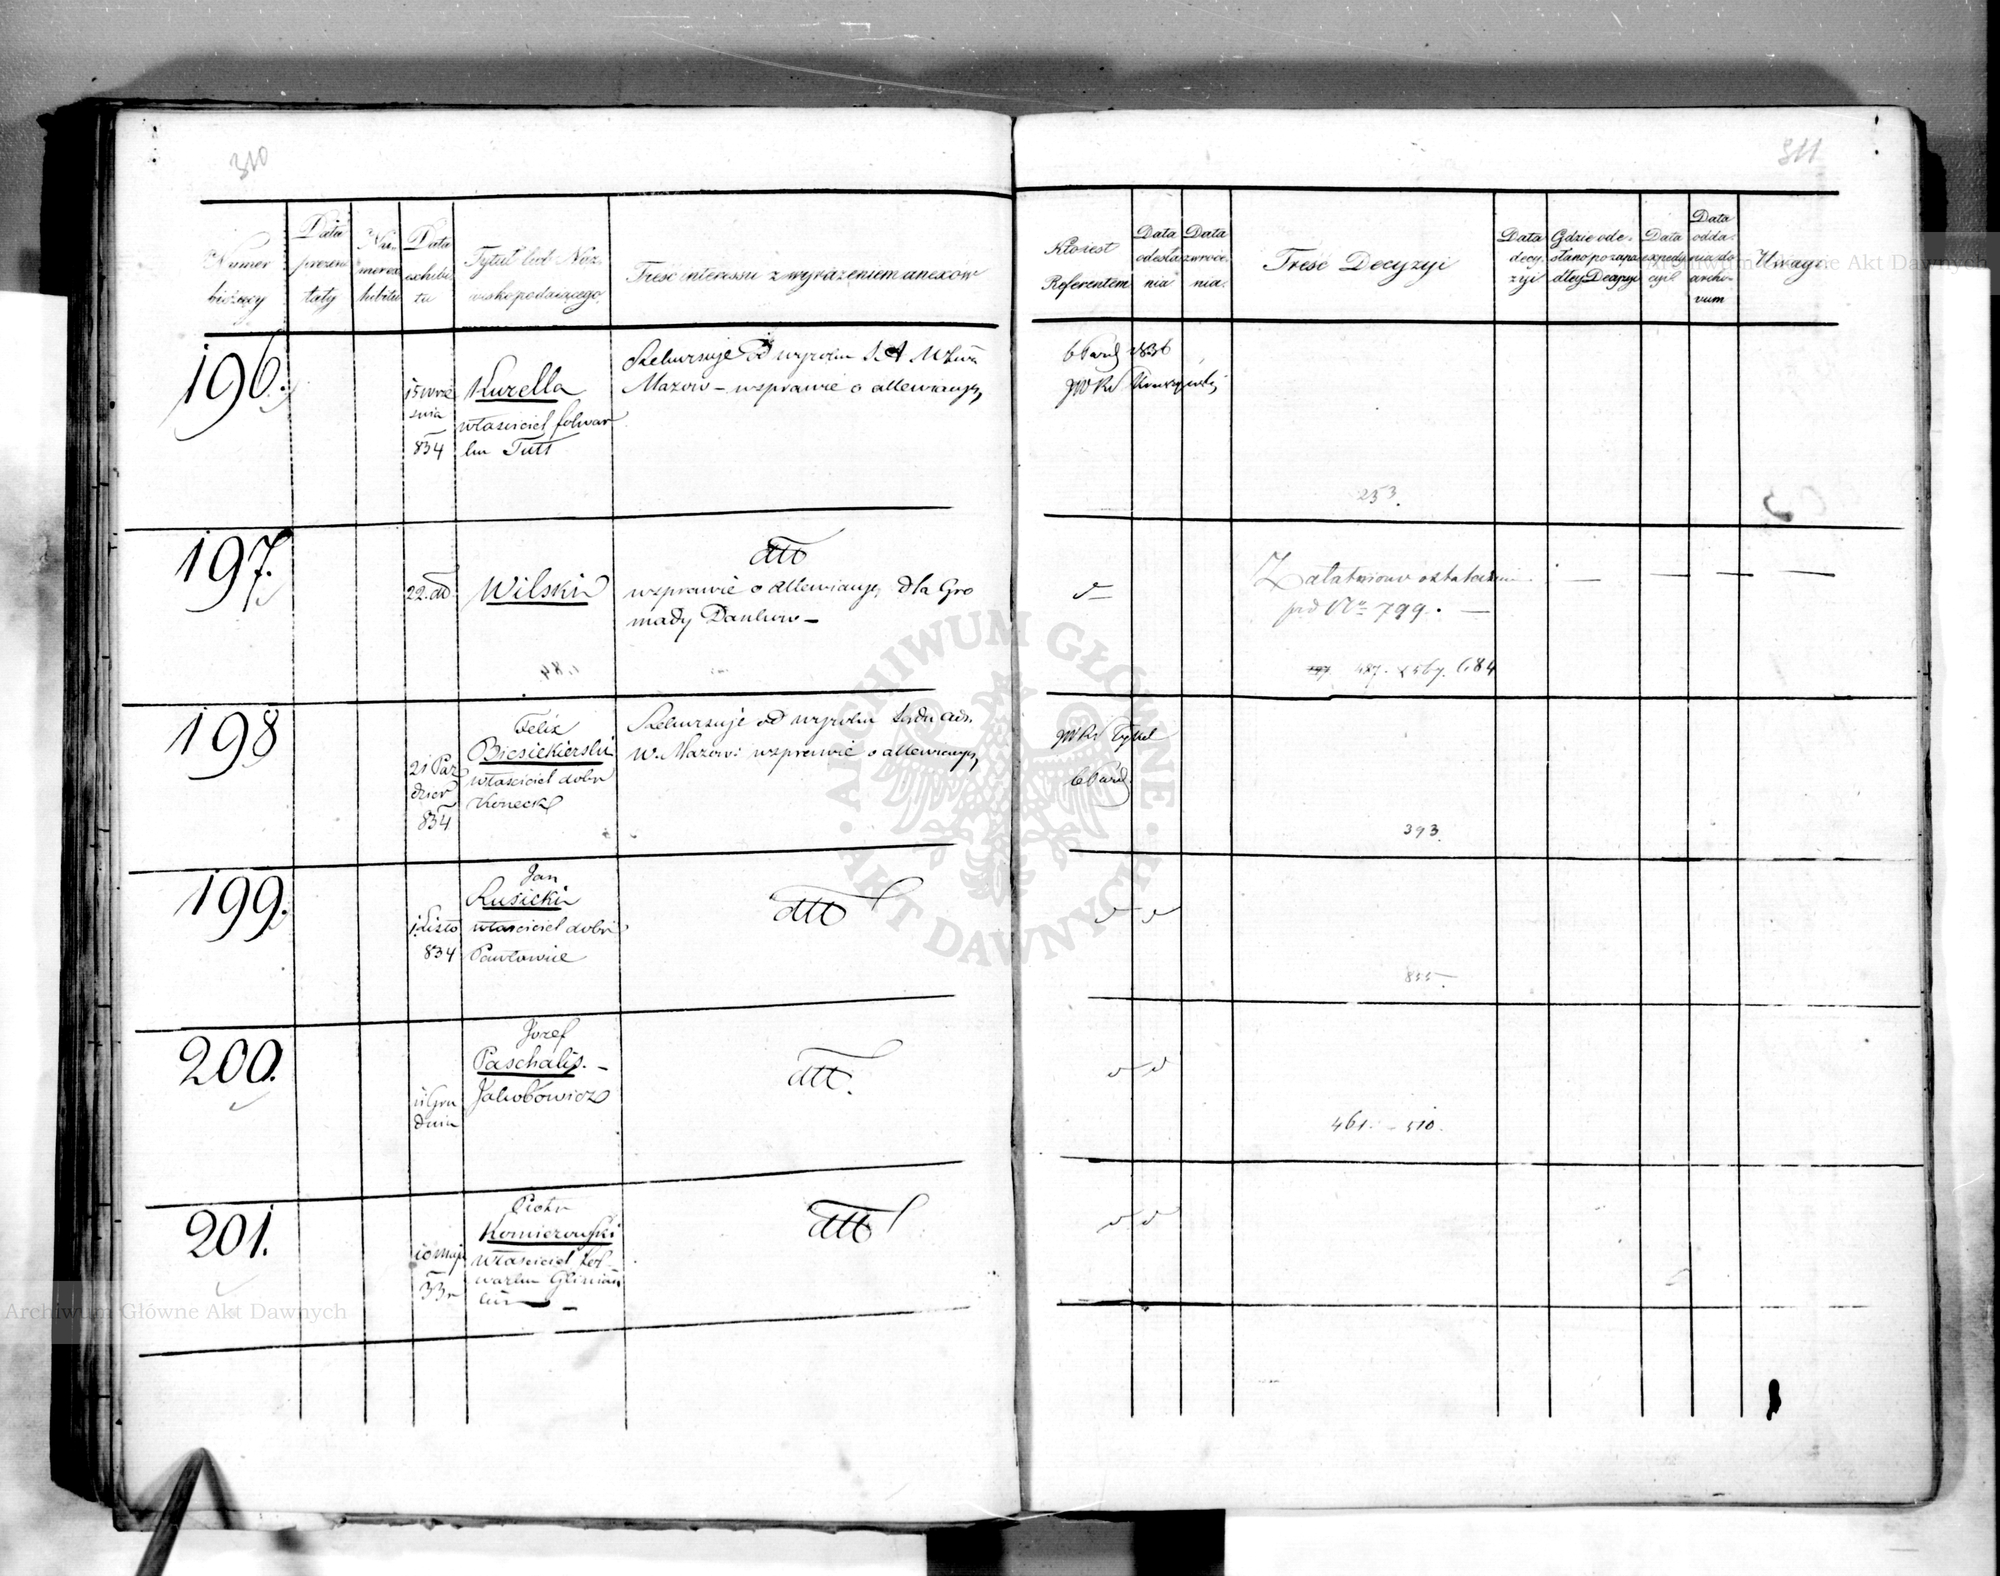 310
311
Numer bieżący
Data prezentaty
Numer exhibitu
Data exhibitu
Tytuł lub Nazwisko podaiącego
Treść interessu z wyrażeniem anexów
Kto iest Referentem
Data odesłania
Data zwrócenia
Treść Decyzyi
Data decyzyi
Gdzie odesłano po zapadłey Decyzyi
Data expedycyi
Data oddania do archivum
Uwagi
196.
15 Wrze
śnia
834
Kurella
właściciel folwar
ku Tutt
Rekursuje od wyroku
Mazow – w sprawie o allewiacyę
6 Paźd 1836
JW Rs
253.
197.
22. dtt
Wilski
dtt
w sprawie o allewiacyę dla Gro
mady Dankow –
Załatwiono ostatecznie
pod No 799. —
487. 567. 684
198
21 Paź
dzier
834
Felix
Biesiekierski
właściciel dobr
Koneck
Rekursuje od wyroku Sądu
w Mazow: w sprawie o allewiacyę
JW Rs Tykel
6 Paźd
393
199.
1 Listo
834
Jan
Rusicki
właściciel dobr
Pawłowice
dtt
855
200.
11 Gru
dnia
Jozef
Paschalis. –
Jakubowicz
dtt.
461. – 510.
201.
10 maja
33 r
Piotr
Komierowski
właściciel fol
warku Glinian
ki —
dtt
ARCHIWUM GŁÓWNE AKT DAWNYCH
Archiwum Główne Akt Dawnych
Archiwum Główne Akt Dawnych